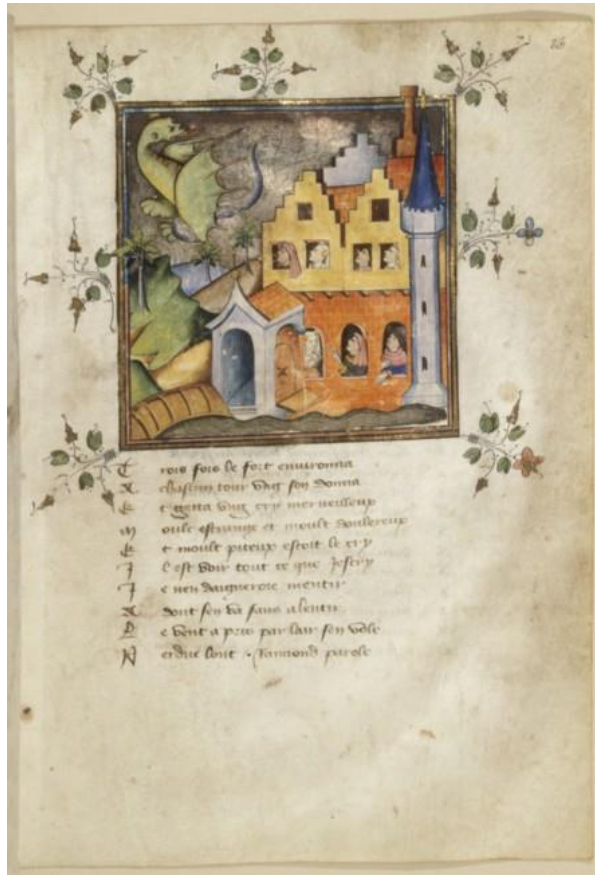 Trois fois le fort environna
A chascun tour ung son donna
Et getta ung cry merveilleux
Moult estrange et moult doulereux
Et moult piteux estoit le cry
Il est voir tout ce que Jescry
Je nen daigneroie mentir
A dont sen va sans alentir
De vent a pris par lair son vole
Perdue lont Raimond parole